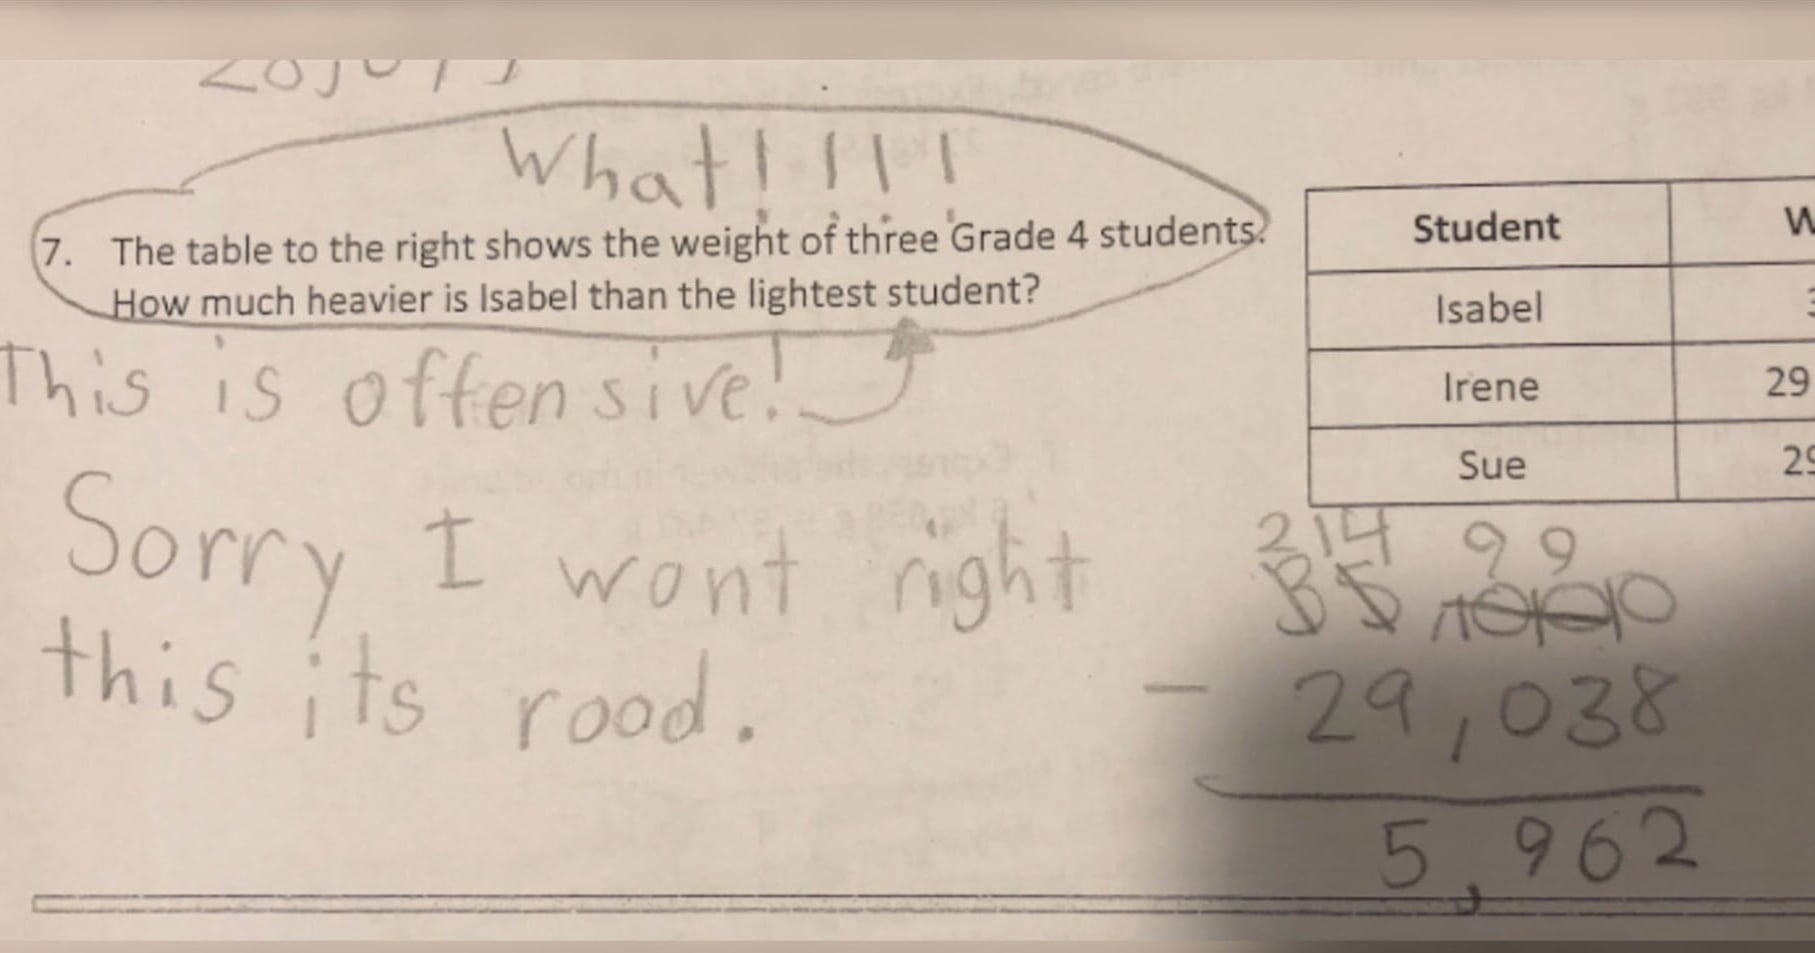 What!!!!
7. The table to the right shows the weight of three Grade 4 students.
How much heavier is Isabel than the lightest student?
This is offensive!
Sorry I wont right
this its rood.
Student W
Isabel 3
Irene 29
Sue 29
2 14 9 9
35,000
- 29,038
5,962